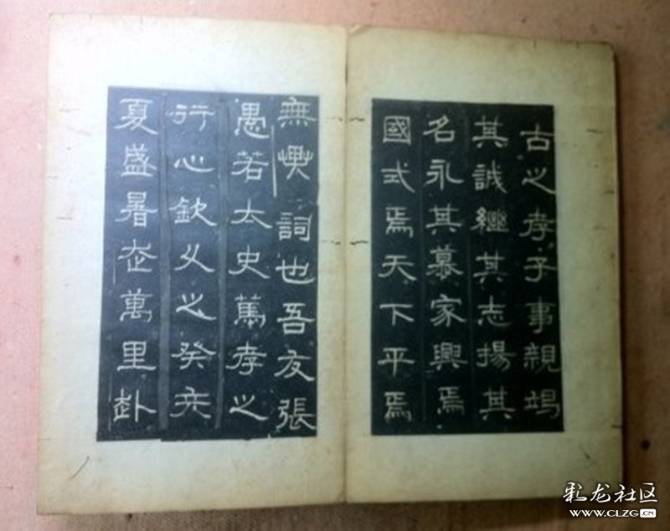 古之孝子事親竭
其誠繼其志揚其
名永其慕家興焉
國式焉天下平焉
無愧詞也吾友張
愚若太史篤孝之
行心欽久之癸亥
夏盛暑走萬里赴
彩龙社区
www.CLZG.CN